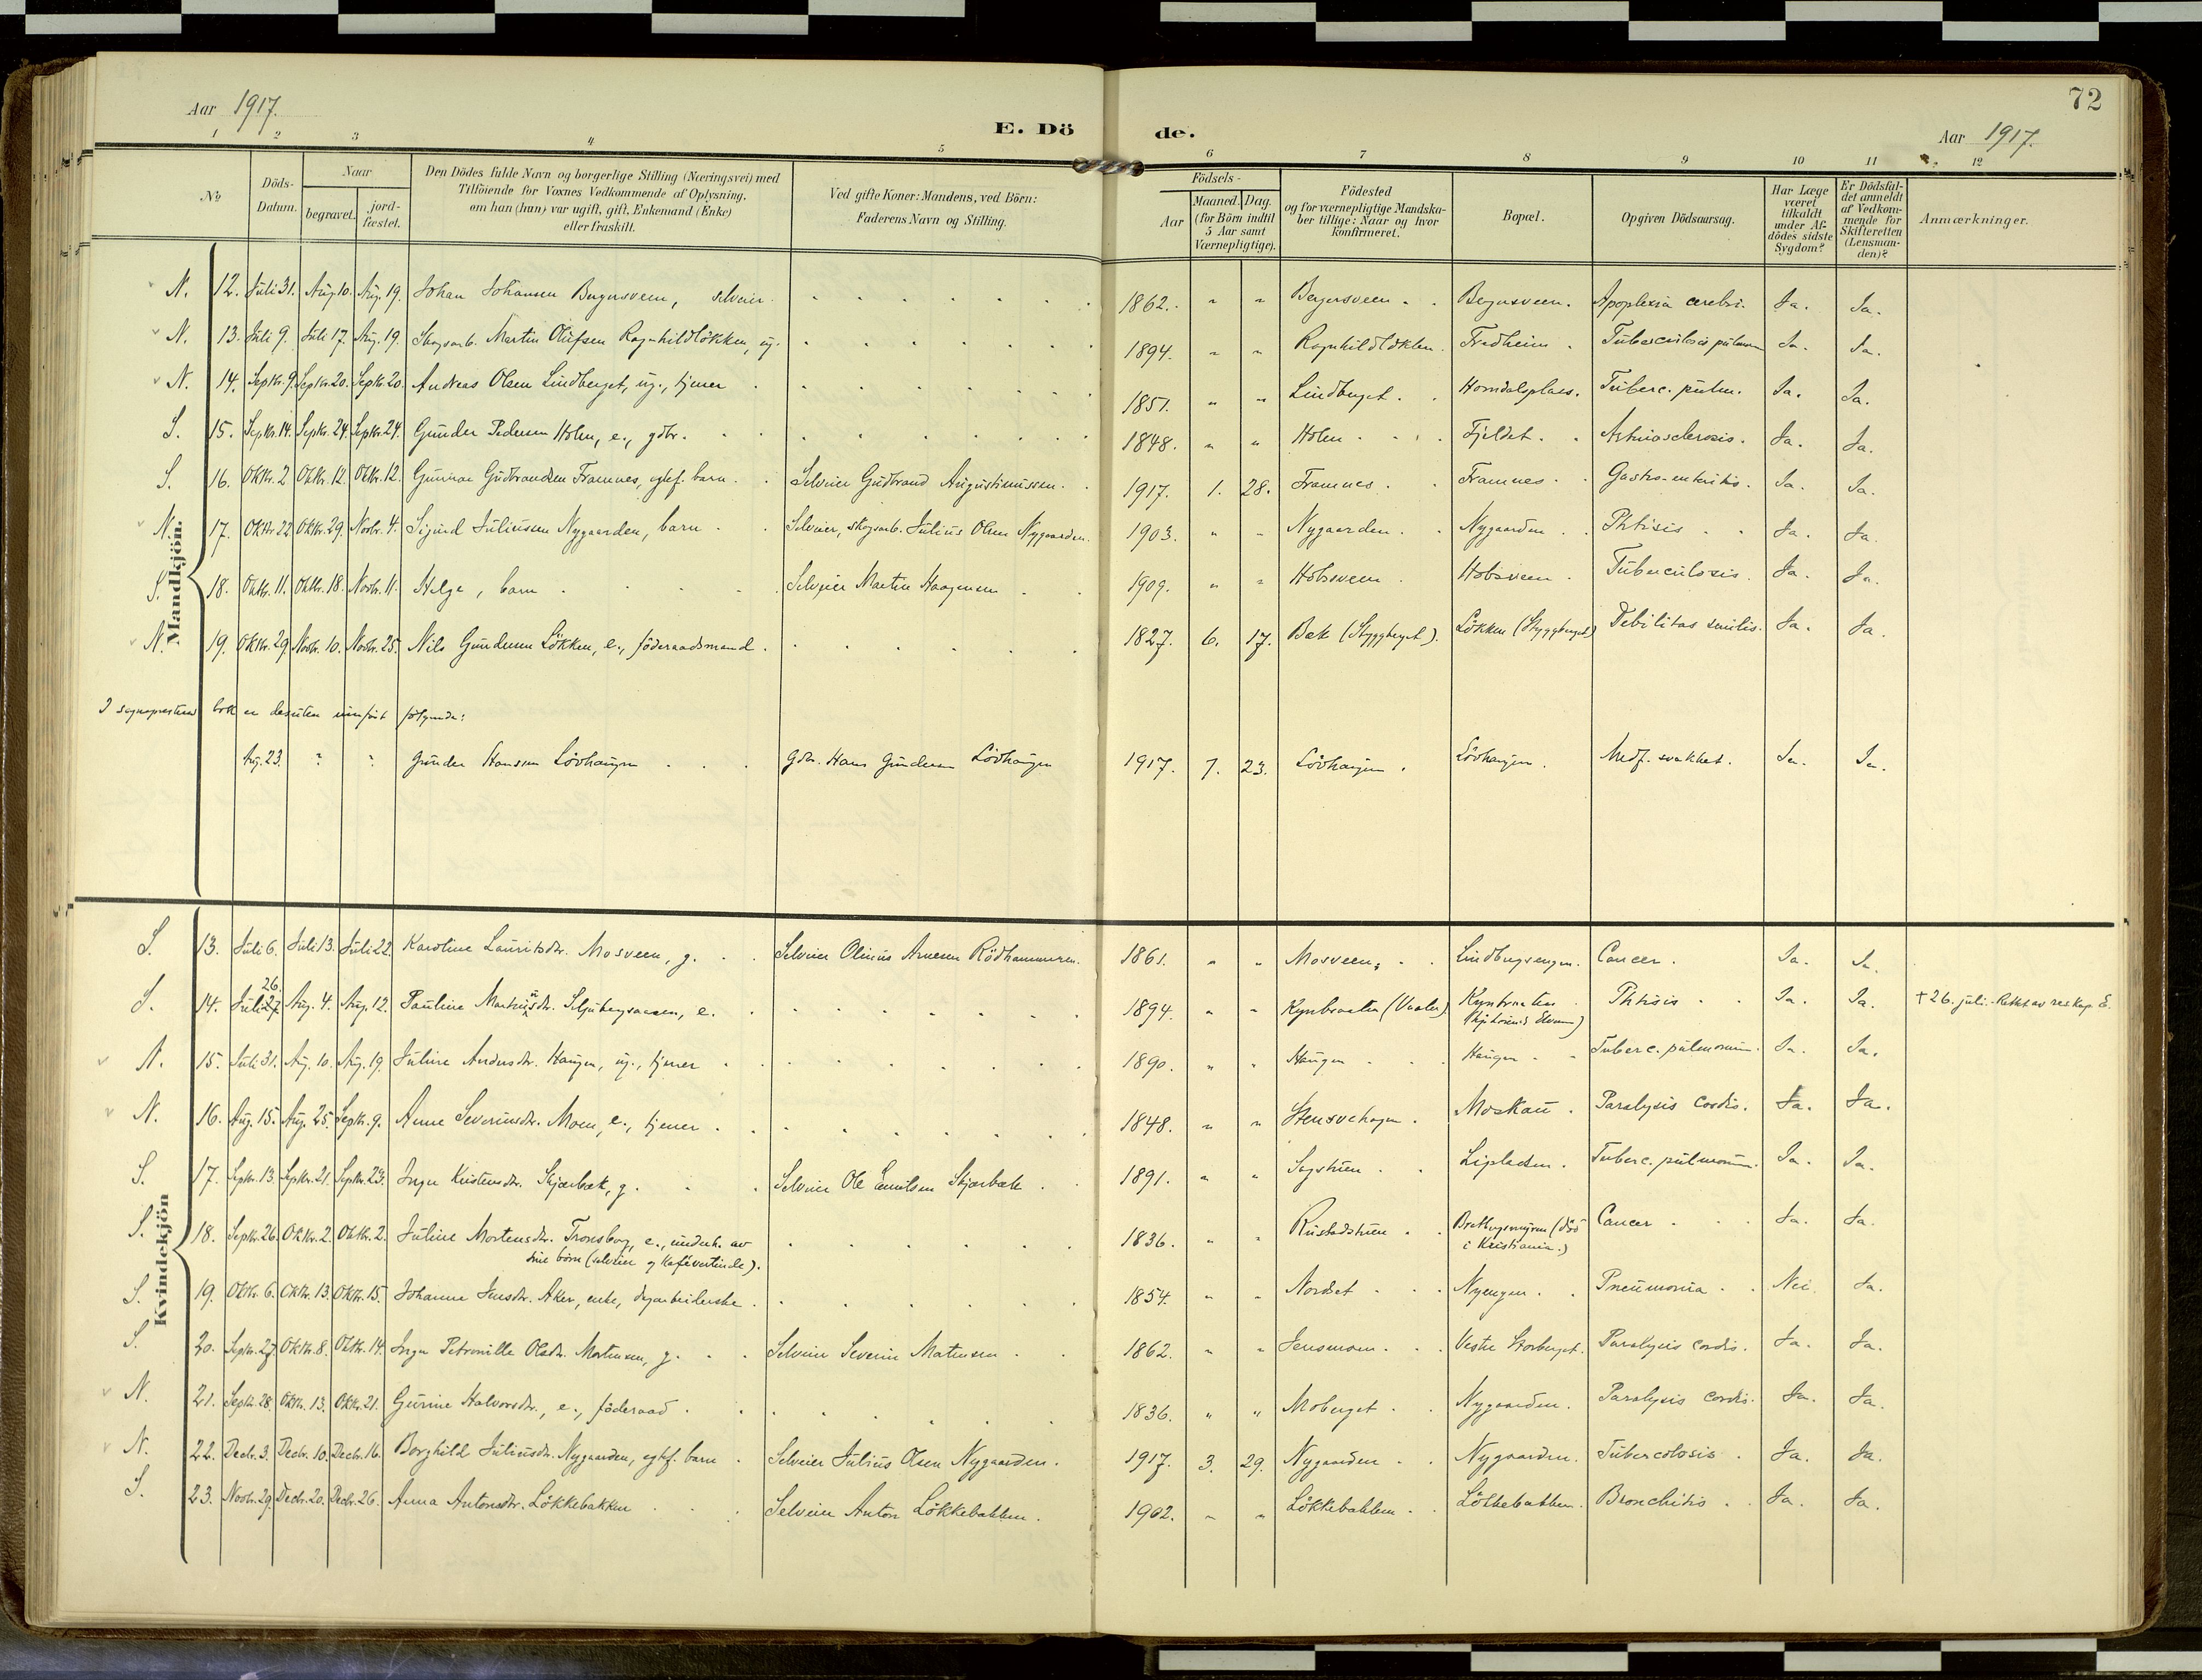 72
Aar 1917.
E. Döde.
Aar 1917.
1 2 3 4 5 6 7 8 9 10 11 12
No
Döds-Datum.
Naar
begravet.
jord-fæstet.
Den Dödes fulde Navn og borgerlige Stilling (Næringsvei) med
Tilföiende for Voxnes Vedkommende af Oplysning,
om han (hun) var ugift, gift, Enkemand (Enke)
eller fraskilt.
Ved gifte Koner: Mandens, ved Börn:
Faderens Navn og Stilling.
Födsels-
Aar
Maaned. Dag.
(for Börn indtil
5 Aar samt
Værnepligtige).
Födested
og for værnepligtige Mandska-
ber tillige: Naar og hvor
konfirmeret.
Bopæl.
Opgiven Dödsaarsag.
Har Læge
været
tilkaldt
under Af-
dödes sidste
Sygdom?
Er Dödsfal-
det anmeldt
af Vedkom-
mende for
Skifteretten
(Lensman-
den)?
Anmærkninger.
Mandkjön.
N. 12. Juli 31. Aug. 10. Aug. 19. Johan Johansen Bergersveen, selveier. 1862. " " Bergersveen. Bergersveen. Apoplexia cerebri. Ja. Ja.
N. 13. Juli 9. Juli 17. Aug. 19. Skogsarb. Martin Olufsen Ragnhildløkken, ug. 1894. " " Ragnhildløkken. Fredheim. Tuberculosis pulmon. Ja. Ja.
N. 14. Septbr. 9. Septbr. 20. Septbr. 20. Andreas Olsen Lindberget, ug., tjener 1851. " " Lindberget. Homdalsplads. Tuberc. pulm. Ja. Ja.
S. 15. Septbr. 14. Septbr. 24. Septbr. 24. Gunder Pedersen Holen, e., gdbr. 1848. " " Holen. Fjeldet. Arteriosclerosis. Ja. Ja.
S. 16. Oktbr. 2 Oktbr. 12. Oktbr. 12. Gunnar Gudbrandsen Framnes, egtef. barn. Selveier Gudbrand Augustinussen. 1917. 1. 28. Framnes. Framnes. Gastro-enteritis. Ja. Ja.
N. 17. Oktbr. 22 Oktbr. 29. Novbr. 4. Sigurd Juliussen Nygaarden, barn. Selveier, skogsarb. Julius Olsen Nygaarden. 1903. " " Nygaarden. Nygaarden. Phtisis Ja. Ja.
S. 18. Oktbr. 11. Oktbr. 18. Novbr. 11. Helge, barn. Selveier Martin Haagensen 1909. " " Hobsveen. Hobsveen. Tuberculosis. Ja. Ja.
N. 19. Oktbr. 29. Novbr. 10. Novbr. 25. Nils Gundersen Løkken, e., föderaadsmand. 1827. 6. 17. Bæk (Styggberget). Løkken (Styggberget) Debilitas senilis. Ja. Ja.
I sogneprestens bok er desuten innført følgende:
Aug. 23. " " Gunder Hansen Lövhaugen gdbr. Hans Gundersen Lövhaugen 1917. 7. 23. Lövhaugen. Lövhaugen. Medf. svakhet. Ja. Ja.
Kvindekjön
S. 13. Juli 6. Juli 13. Juli 22. Karoline Lauritsdtr. Mosveen, g. Selveier Olinius Arnesen Rödhammeren. 1861. " " Mosveen. Lindbergsengen. Cancer. Ja. Ja.
S. 14. Juli 27. 26. Aug. 4. Aug. 12. Pauline Martinusdtr. Siljubergsaasen, e. 1894. " " Kynbraaten (Vaaler) Kynbraaten Phtisis Ja. Ja. † 26. juli. Rettet av res. kap. E.
N. 15. Juli 31. Aug. 10. Aug. 19. Juline Andersdtr. Haugen, ug., tjener 1890. " " Haugen Haugen Tuberc. pulmonum. Ja. Ja.
N. 16. Aug. 15. Aug. 25. Septbr. 9. Anne Severinsdtr. Moen, e., tjener. 1848. " " Stensvehagen. Moskau. Paralysis cordis. Ja. Ja.
S. 17. Septbr. 13. Septbr. 21. Septbr. 23. Inger Kristensdtr. Skjærbæk, g. Selveier Ole Emilsen Skjærbæk. 1891. " " Sagstuen. Lipladsen. Tuberc. pulmonum. Ja. Ja.
S. 18. Septbr. 26. Oktbr. 2. Oktbr. 2. Juline Mortensdtr. Tronsborg, e., underh. av
sine børn (selveier og kafévertinde). 1836. " " Rustadstuen. Bratbergsmyren (död
i Kristiania.) Cancer Ja. Ja.
S. 19. Oktbr. 6. Oktbr. 13. Oktbr. 15. Johanne Jensdtr. Aker, enke, dagarbeiderske. 1854. " " Nordset Nyengen. Pneumonia. Nei. Ja.
S. 20. Septbr. 27. Oktbr. 8. Oktbr. 14. Inger Petronille Olsdtr. Martinsen, g. Selveier Severin Matinsen 1862. " " Jensmoen. Vestre Storberget. Paralysis cordis. Ja. Ja.
N. 21. Septbr. 28. Oktbr. 13. Oktbr. 21. Gurine Halvorsdtr., e., föderaad. 1836. " " Moberget. Nygaarden. Paralysis cordis. Ja. Ja.
N. 22. Decbr. 3. Decbr. 10. Decbr. 16. Borghild Juliusdtr. Nygaarden, egtef. barn. Selveier Julius Olsen Nygaarden. 1917. 3. 29. Nygaarden Nygaarden. Tuberculosis. Ja. Ja.
S. 23. Novbr. 29. Decbr. 20. Decbr. 26. Anna Antonsdtr. Løkkebakken Selveier Anton Løkkebakken. 1902. " " Løkkebakken. Løkkebakken. Bronchitis. Ja. Ja.